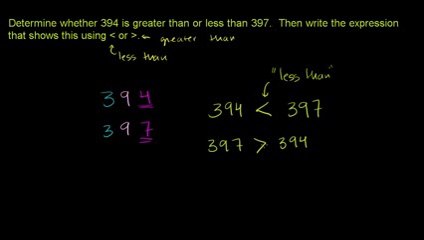 Determine whether 394 is greater than or less than 397. Then write the expression
that shows this using < or >. greater than
less than
"less than"
394
394 < 397
397
397 > 394